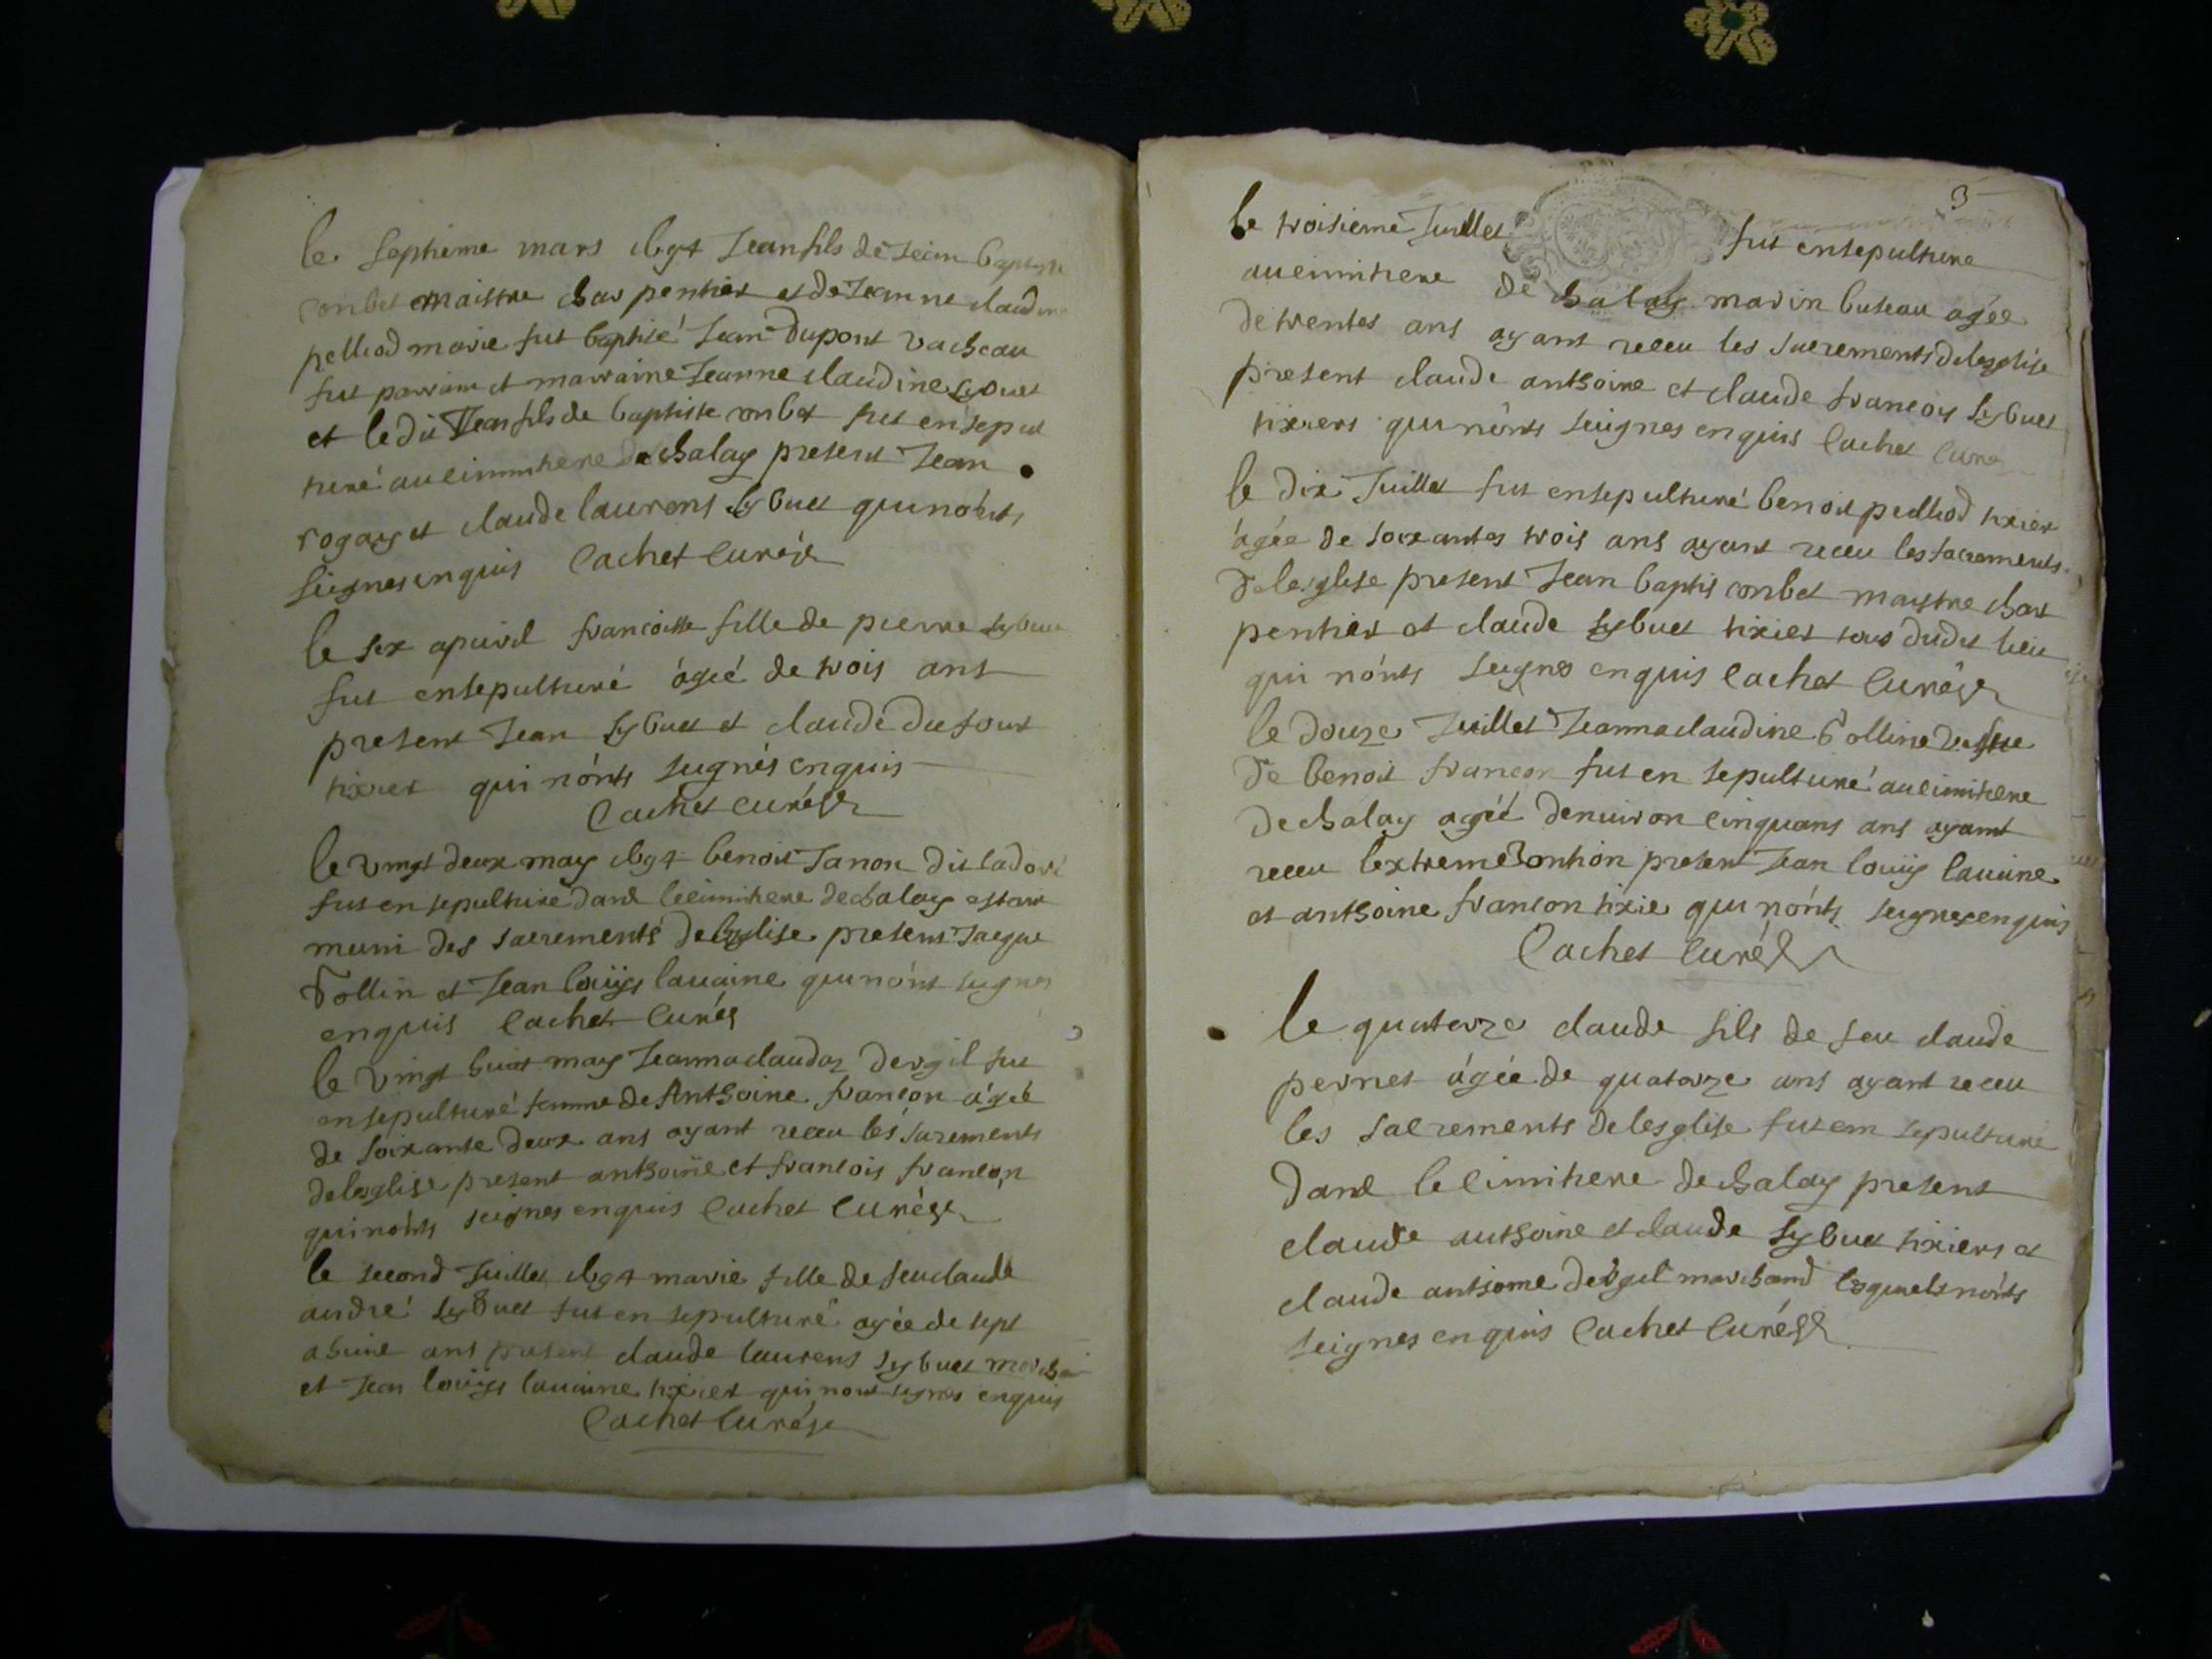 le septieme mars 1694 Jean fils de Jean baptiste
combet maistre charpentier et de Jeanne claudine
pelliod marie fut baptisé Jean Dupont vacheau
fut parrain et marraine Jeanne claudine sybuet
et le dit Jean fils de baptiste combet fut ensepul
turé au cimitiere de chalay present Jean
rogay et claude laurens sybuet qui nónts
seignes enquis Cachet Curé
le six apuril francoisse fille de pierre sybuet
fut ensepulturé ágeé de trois ans
present Jean sybuet et claude dufour
tixier qui nónts seignés enquis
Cachet curé
le vingt deux may 1694 benoit Janon dit
fut en sepulturé dans le cimitiere de chalay estant
muni des sacrements de leglise present Jacque
vollin et Jean louijs lauaine qui nónt seignes
enquis Cachet Curé
le vingt huict may Jeanna claudaz dergil fut
ensepulturé femme de Anthoine francon ágeé
de soixante deux ans ayant receu les sacrements
de lesglise present anthoine et francois francon
qui nónts seignes enquis Cachet Curé
le second Juillet 1694 marie fille de feu claude
andré sybuet fut en sepulturé agée de sept
a huict ans present claude laurens sybuet marchand
et Jean louijs lauaine tixier qui nont seignes enquis
Cachet Curé
3
le troisieme Juillet fut ensepulture
au cimitiere de chalay marin buteau agée
de trentes ans ayant receu les sacrements de lesglise
present claude anthoine et claude francois sybuet
tixiers qui nónts seignes enquis Cachet Curé
le dix Juillet fut ensepulturé benoit pelliod tixier
ágée de soixantes trois ans ayant receu les sacrements
de lesglise present Jean baptis combet maystre char
pentier et claude sybuet tixier tous dudit lieu
qui nónts seignes enquis Cachet Curé
le douze Juillet Jeanna claudine volline vefue
de benoit francon fut en sepulturé au cimitiere
de chalay ageé denuiron cinquans ans ayant
receu lextreme ontion present Jean louijs lauaine
et anthoine francon tixie qui nónts seignes enquis
Cachet Curé
le quatorze claude fils de feu claude
pernet ágée de quatorze ans ayant receu
les sacrements de lesglise fut em sepulturé
dans le cimitiere de chalay present
claude anthoine et claude sybuet tixiers et
claude anthoine dergil marchand lesquels nónts
seignes enquis Cachet Curé